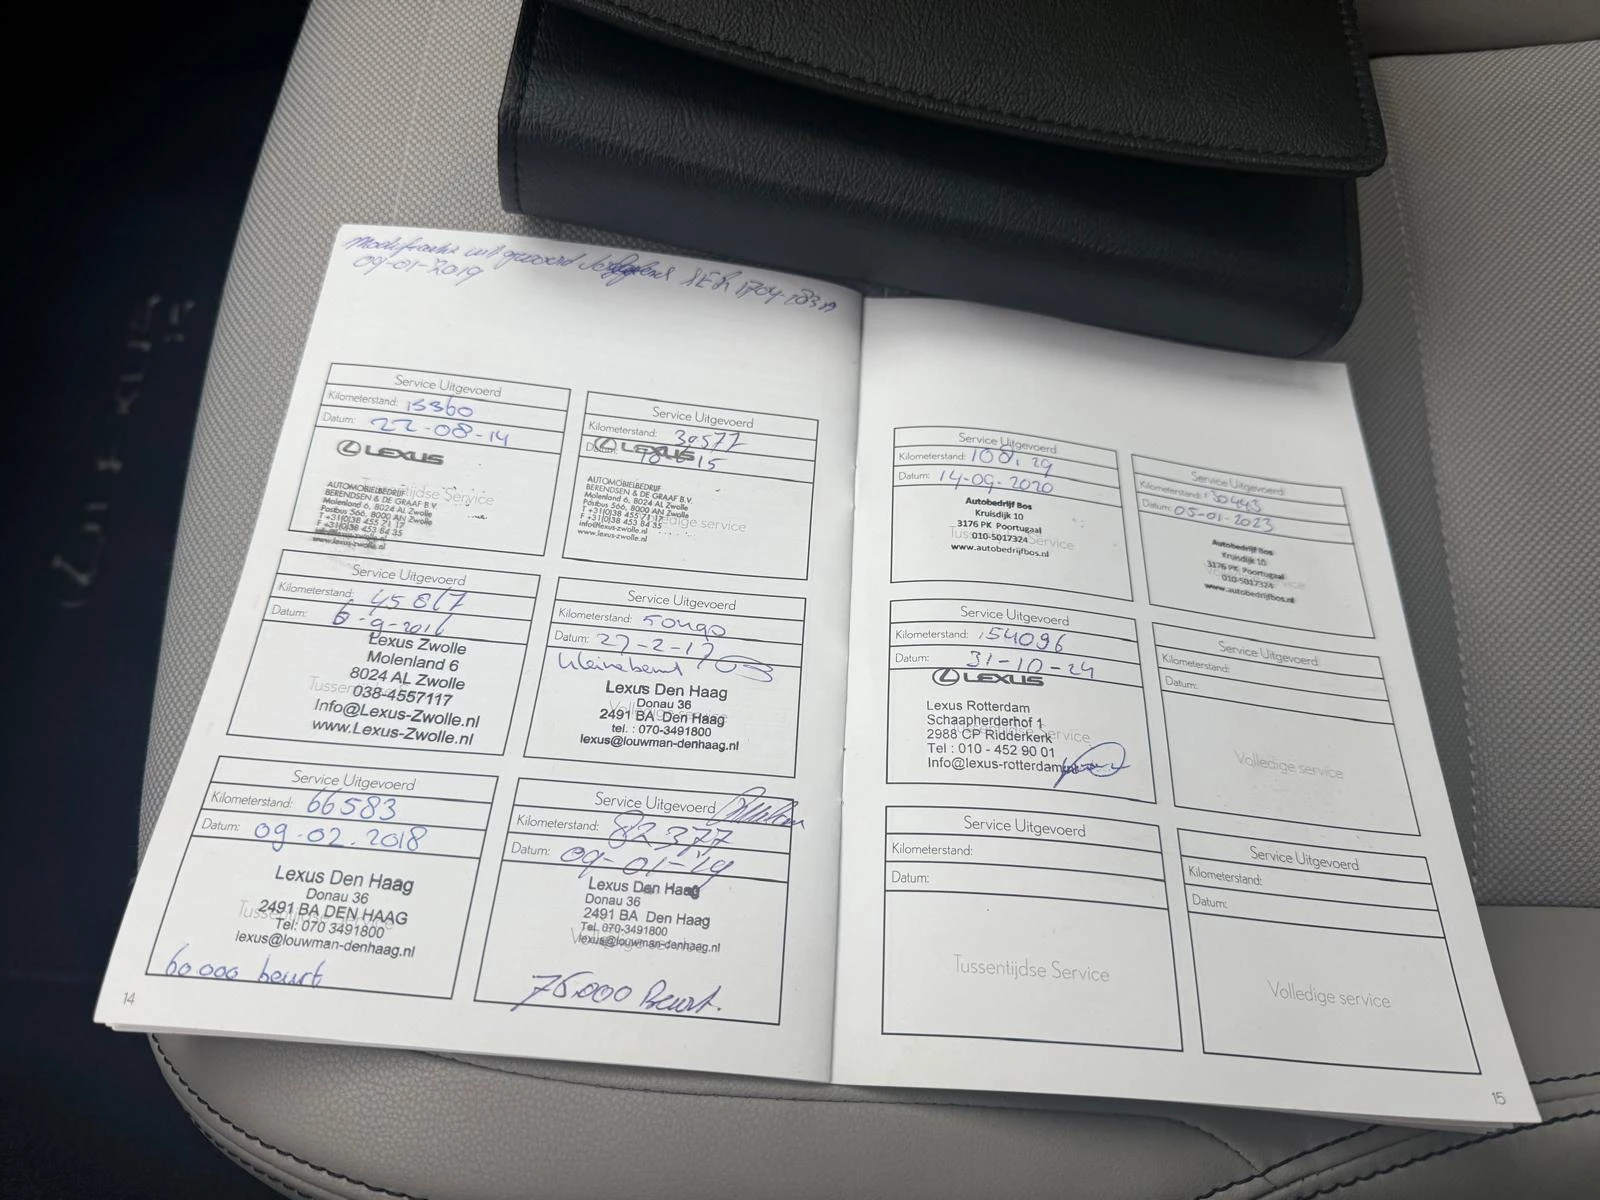 uitgevoerd
09-01-2019
Service Uitgevoerd
Kilometerstand: 15360
Datum: 22-08-14
LEXUS
Tussentijdse Service
AUTOMOBIELBEDRIJF
BERENDSEN & DE GRAAF B.V.
Molenland 6, 8024 AL Zwolle
Postbus 566, 8000 AN Zwolle
T +31(0)38 455 71 17
F +31(0)38 453 84 35
info@lexus-zwolle.nl
www.lexus-zwolle.nl
Service Uitgevoerd
Kilometerstand: 30577
Datum:
LEXUS
AUTOMOBIELBEDRIJF
BERENDSEN & DE GRAAF B.V.
Molenland 6, 8024 AL Zwolle
Postbus 566, 8000 AN Zwolle
T +31(0)38 455 71 17
Volledige service
F +31(0)38 453 84 35
info@lexus-zwolle.nl
www.lexus-zwolle.nl
Service Uitgevoerd
Kilometerstand: 45867
Datum: 6-9-2016
Lexus Zwolle
Molenland 6
8024 AL Zwolle
038-4557117
Info@Lexus-Zwolle.nl
www.Lexus-Zwolle.nl
Service Uitgevoerd
Kilometerstand:
Datum: 27-2-17
kleinebeurt
Lexus Den Haag
Donau 36
2491 BA Den Haag
Volledige service
tel. : 070-3491800
lexus@louwman-denhaag.nl
Service Uitgevoerd
Kilometerstand: 66583
Datum: 09-02.2018
Lexus Den Haag
Donau 36
2491 BA DEN HAAG
Tussentijdse Service
Tel: 070 3491800
lexus@louwman-denhaag.nl
60.000 beurt
Service Uitgevoerd
Kilometerstand: 82377
Datum: 09-01-'19
Lexus Den Haag
Donau 36
2491 BA Den Haag
Tel. 070-3491800
lexus@louwman-denhaag.nl
75.000 Beurt.
14
Service Uitgevoerd
Kilometerstand:
Datum: 14-09-2020
Autobedrijf Bos
Kruisdijk 10
3176 PK Poortugaal
010-5017324
Tussentijdse Service
www.autobedrijfbos.nl
Service Uitgevoerd
Kilometerstand: 130443
Datum: 05-01-2023
Autobedrijf Bos
Kruisdijk 10
3176 PK Poortugaal
010-5017324
www.autobedrijfbos.nl
Service Uitgevoerd
Kilometerstand: 154096
Datum: 31-10-24
LEXUS
Lexus Rotterdam
Schaapherderhof 1
2988 CP Ridderkerk
Tussentijdse Service
Tel : 010 - 452 90 01
Info@lexus-rotterdam.nl
Service Uitgevoerd
Kilometerstand:
Datum:
Volledige service
Service Uitgevoerd
Kilometerstand:
Datum:
Tussentijdse Service
Service Uitgevoerd
Kilometerstand:
Datum:
Volledige service
15